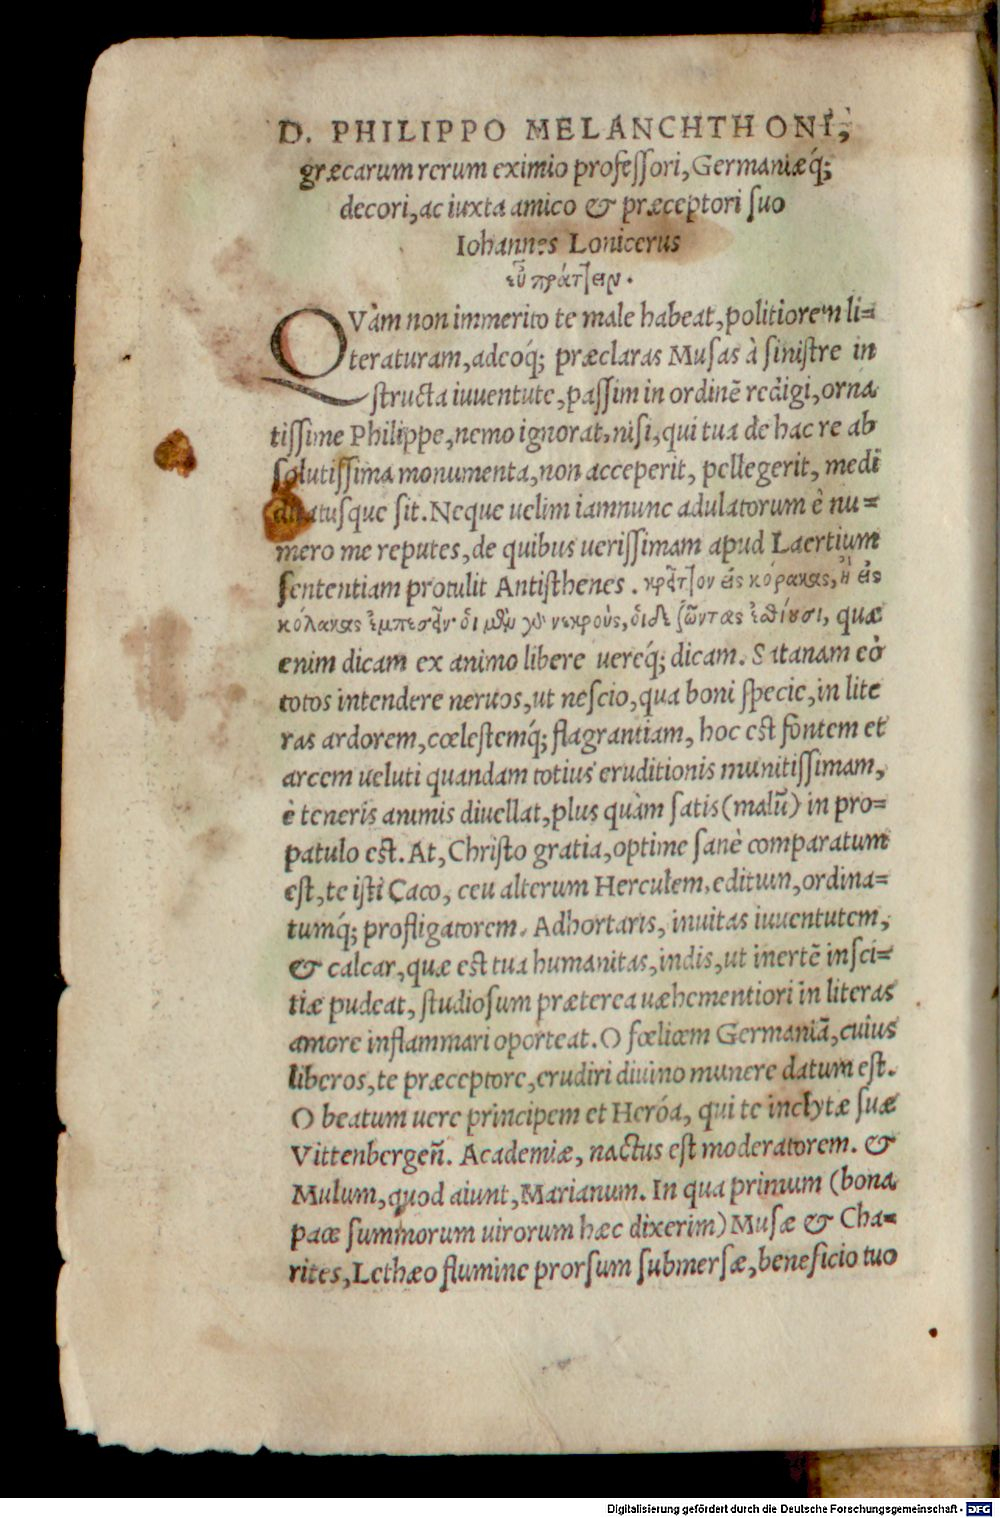 D. PHILIPPO MELANCHTHONI,
græcarum rerum eximio professori, Germaniæq́;
decori, ac iuxta amico & præceptori suo
Iohannes Lonicerus
εὖ πράτ]ειν.
QVàm non immerito te male habeat, politiorem li=
teraturam, adeoq́; præclaras Musas à sinistre in
structa iuuentute, passim in ordinē redigi, orna
tissime Philippe, nemo ignorat, nisi, qui tua de hac re ab
solutissima monumenta, non acceperit, pellegerit, medi
tatusque sit. Neque uelim iamnunc adulatorum è nu=
mero me reputes, de quibus uerissimam apud Laertium
sententiam protulit Antisthenes. κρεῖτ]ον εἰς κόρακας, ἢ εἰς
κόλακας ἐμπεσεῖν· ὁι μὲν γὰρ νεκροὺς, ὁι δὲ ζῶντας ἐσθίουσι, quæ
enim dicam ex animo libere uereq́; dicam. Satanam eò
totos intendere neruos, ut nescio, qua boni specie, in lite
ras ardorem, cœlestemq́; flagrantiam, hoc est fontem et
arcem ueluti quandam totius eruditionis munitissimam,
è teneris animis diuellat, plus quàm satis (malū) in pro=
patulo est. At, Christo gratia, optime sanè comparatum
est, te isti Caco, ceu alterum Herculem, editum, ordina=
tumq́; profligatorem. Adhortaris, inuitas iuuentutem,
& calcar, quæ est tua humanitas, indis, ut inertē insci=
tiæ pudeat, studiosum præterea uæhementiori in literas
amore inflammari oporteat. O fœlicem Germaniā, cuius
liberos, te præceptore, erudiri diuino munere datum est.
O beatum uere principem et Heróa, qui te inclytæ suæ
Vittenbergeñ. Academiæ, nactus est moderatorem. &
Mulum, quod aiunt, Marianum. In qua primum (bona
pace summorum uirorum hæc dixerim) Musæ & Cha=
rites, Lethæo flumine prorsum submersæ, beneficio tuo
Digitalisierung gefördert durch die Deutsche Forschungsgemeinschaft - DFG